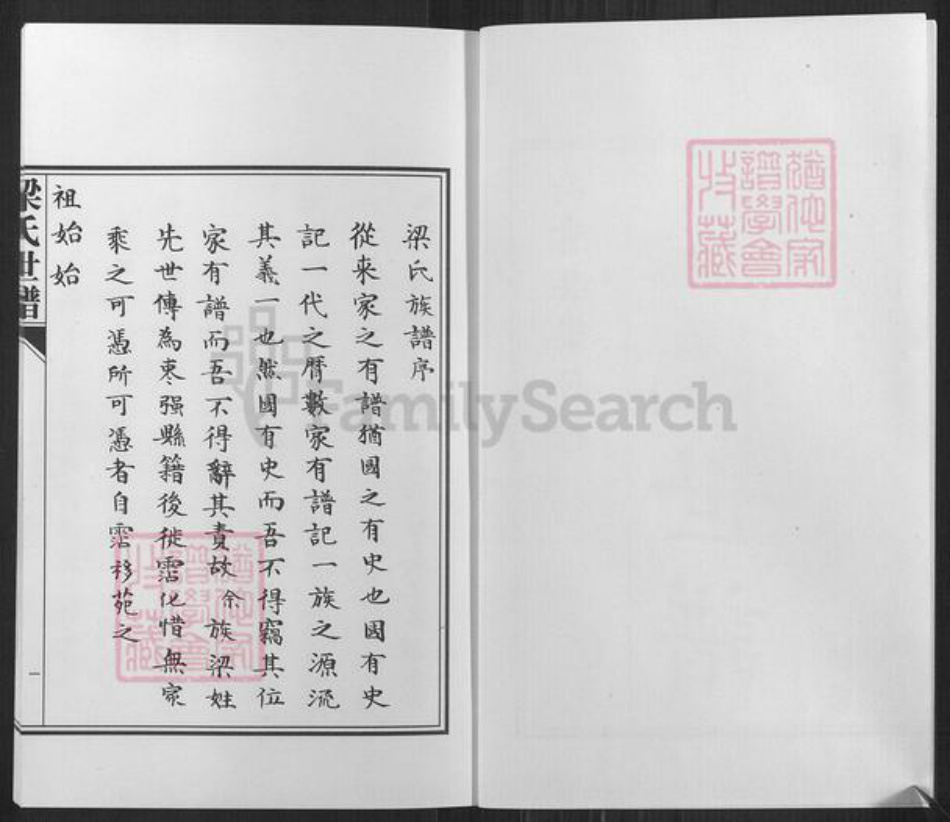 梁氏族譜序
從來家之有譜猶國之有史也國有史
記一代之曆數家有譜記一族之源流
其義一也然國有史而吾不得竊其位
家有譜而吾不得辭其責故余族梁姓
先世傳為棗强縣籍後徙霑化惜無家
乘之可憑所可憑者自霑移苑之
始
始
祖
梁氏世譜
一
猶他家
譜學會
收藏
猶他家
譜學會
收藏
FamilySearch